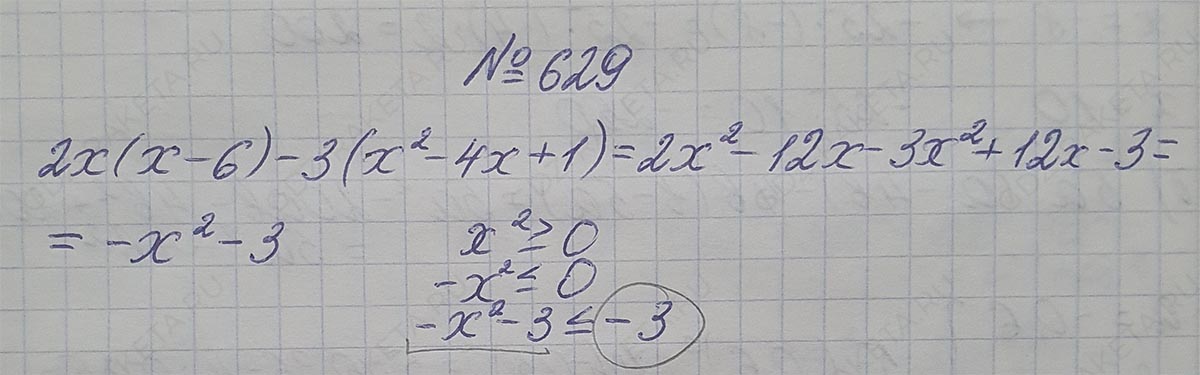 № 629
2x(x-6)-3(x²-4x+1)=2x²-12x-3x²+12x-3=
= -x²-3
x² ≥ 0
-x² ≤ 0
-x²-3 ≤ -3